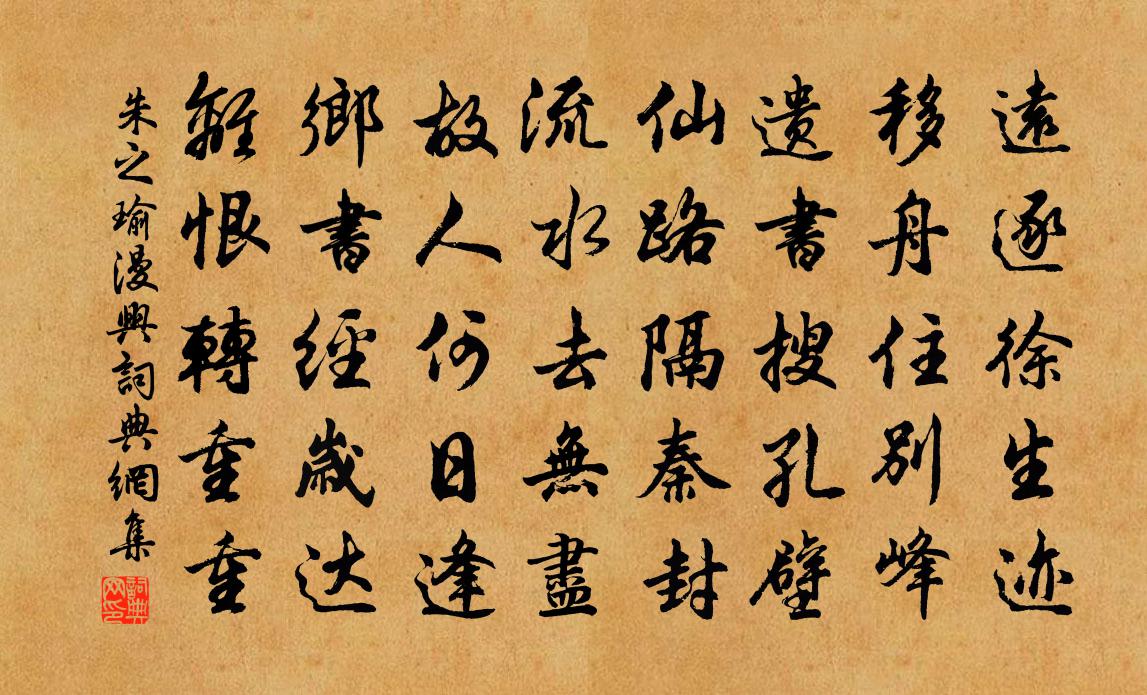 遠逐徐生迹
移舟住別峰
遺書搜孔壁
仙路隔秦封
流水去無盡
故人何日逢
鄉書經歲达
離恨轉重重
朱之瑜漫興詞典網集
詞典网印